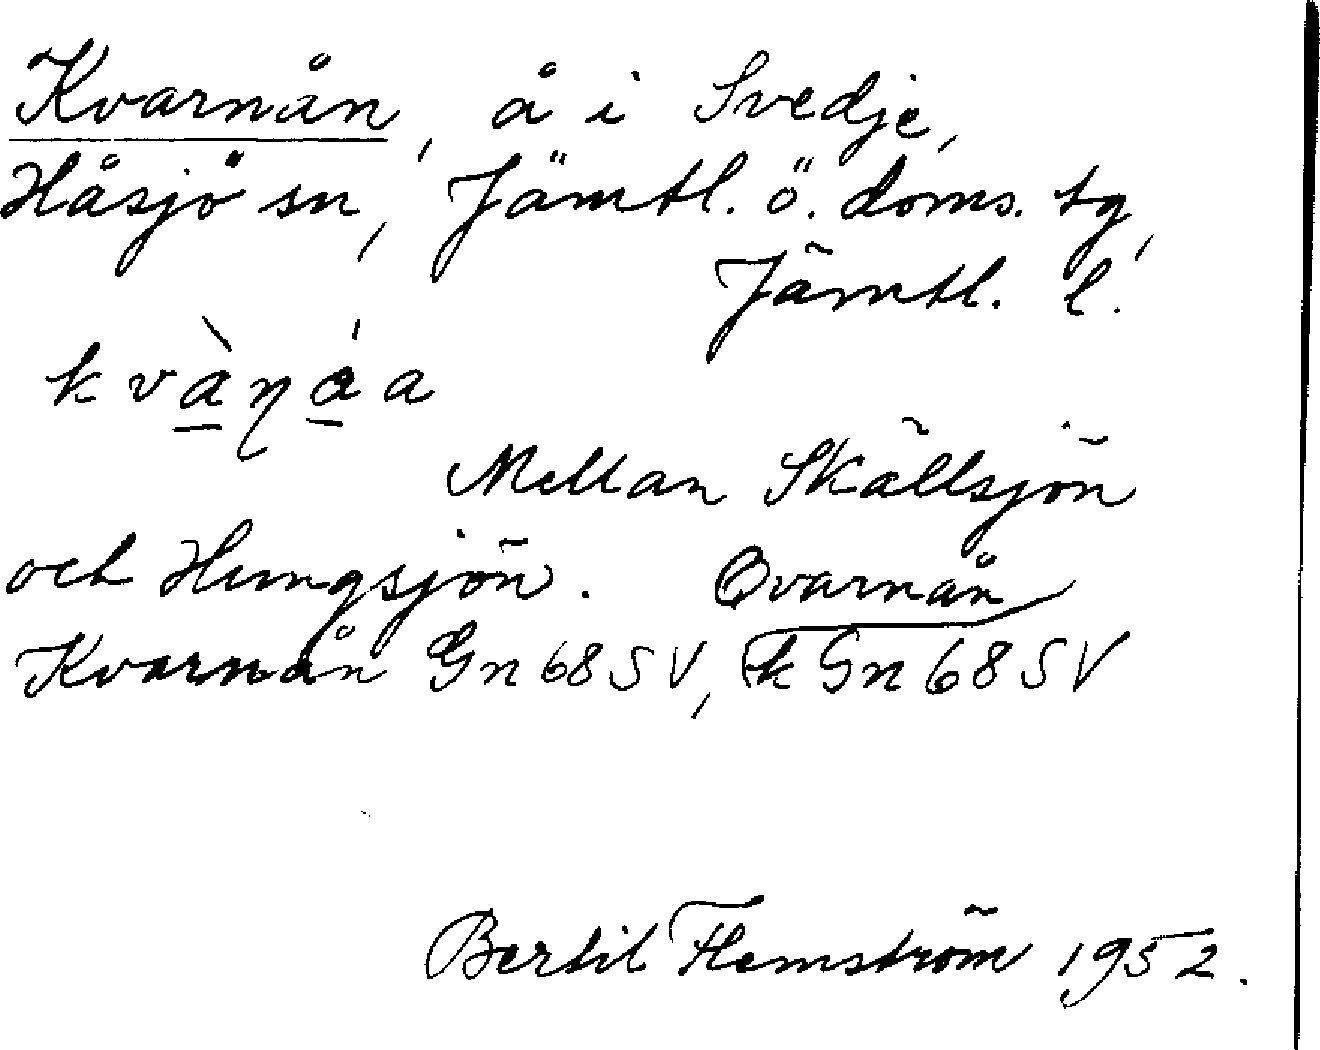 Kvarnån, å i Svedje,
Håsjö sn, Jämtl. ö. doms. tg,
Jämtl. l.
kvàŋáa
Mellan Skällsjön
och Hungsjön. Qvarnån
Kvarnån Gn 68 SV, Ek Gn 68 SV
Bertil Flemström 1952.